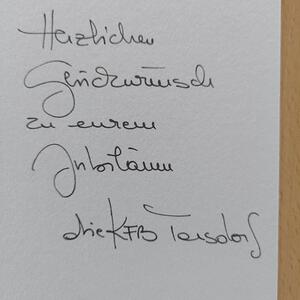 Herzlichen
Glückwunsch
zu eurem
Jubiläum
die KFB Tarsdorf